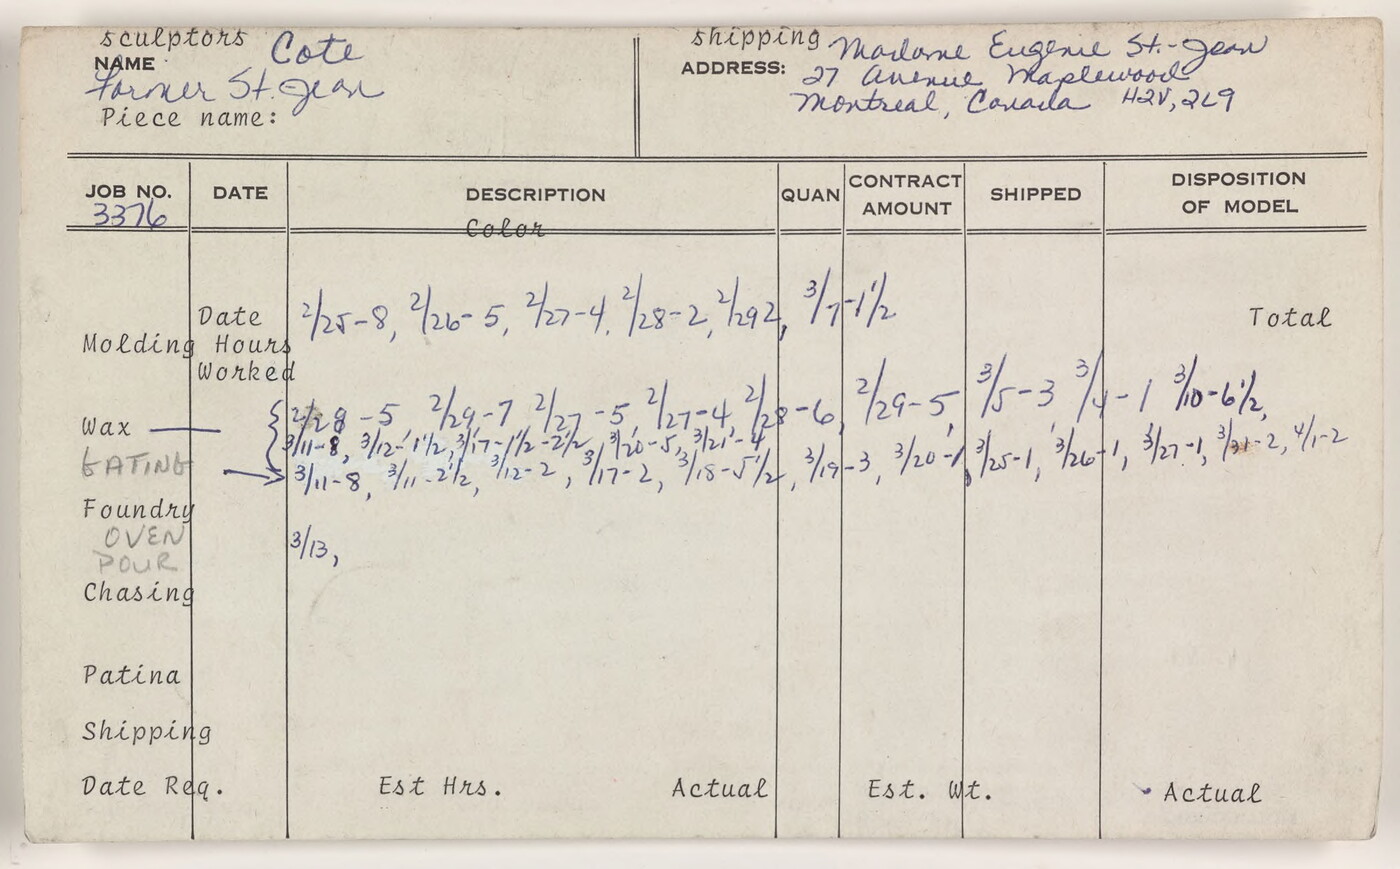 sculptors Cote
NAME
Former St. Jean
Piece name:
shipping Madame Eugenie St.-Jean
ADDRESS: 27 Avenue Maplewood
Montreal, Canada H2V, 2L9
JOB NO. DATE DESCRIPTION QUAN CONTRACT AMOUNT SHIPPED DISPOSITION OF MODEL
3376
Color
Date
Molding Hours
Worked
2/25-8, 2/26-5, 2/27-4, 2/28-2, 2/29 2, 3/7-1 1/2
Total
Wax
-5 2/29-7 2/27-5, 2/27-4, 2/28-6, 2/29-5, 3/5-3 -1 3/10-6 1/2,
3/11-8, 3/12-1 1/2, 3/17-1 1/2-2 1/2 3/20-5, 3/21-4
GATING
3/11-8, 3/11-2 1/2, 3/12-2, 3/17-2, 3/18-5 1/2, 3/19-3, 3/20-1, 3/25-1, 3/26-1, 3/27-1, 3/31-2, 4/1-2
Foundry
OVEN
3/13,
POUR
Chasing
Patina
Shipping
Date Req. Est Hrs. Actual Est. Wt. Actual